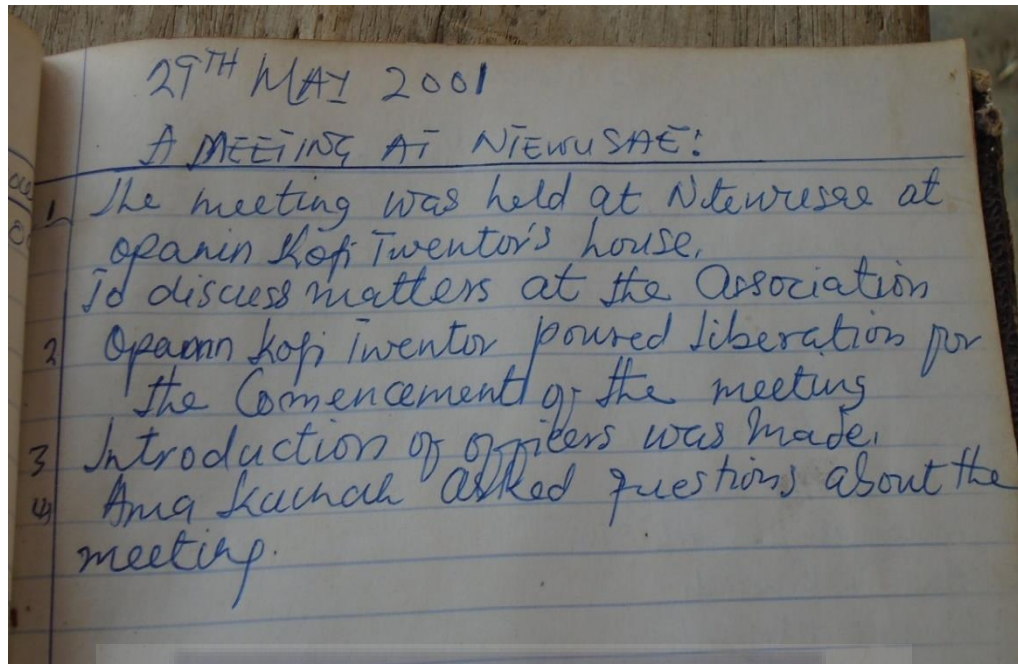 29TH MAY 2001
A MEETING AT NTEWUSAE:
1 The meeting was held at Ntewusae at
opanin Kofi Twentor's house.
To discuss matters at the Association
2 Opanin Kofi Twentor poured liberation for
the Comencement of the meeting
3 Introduction of officers was made.
4 Ama asked questions about the
meeting.